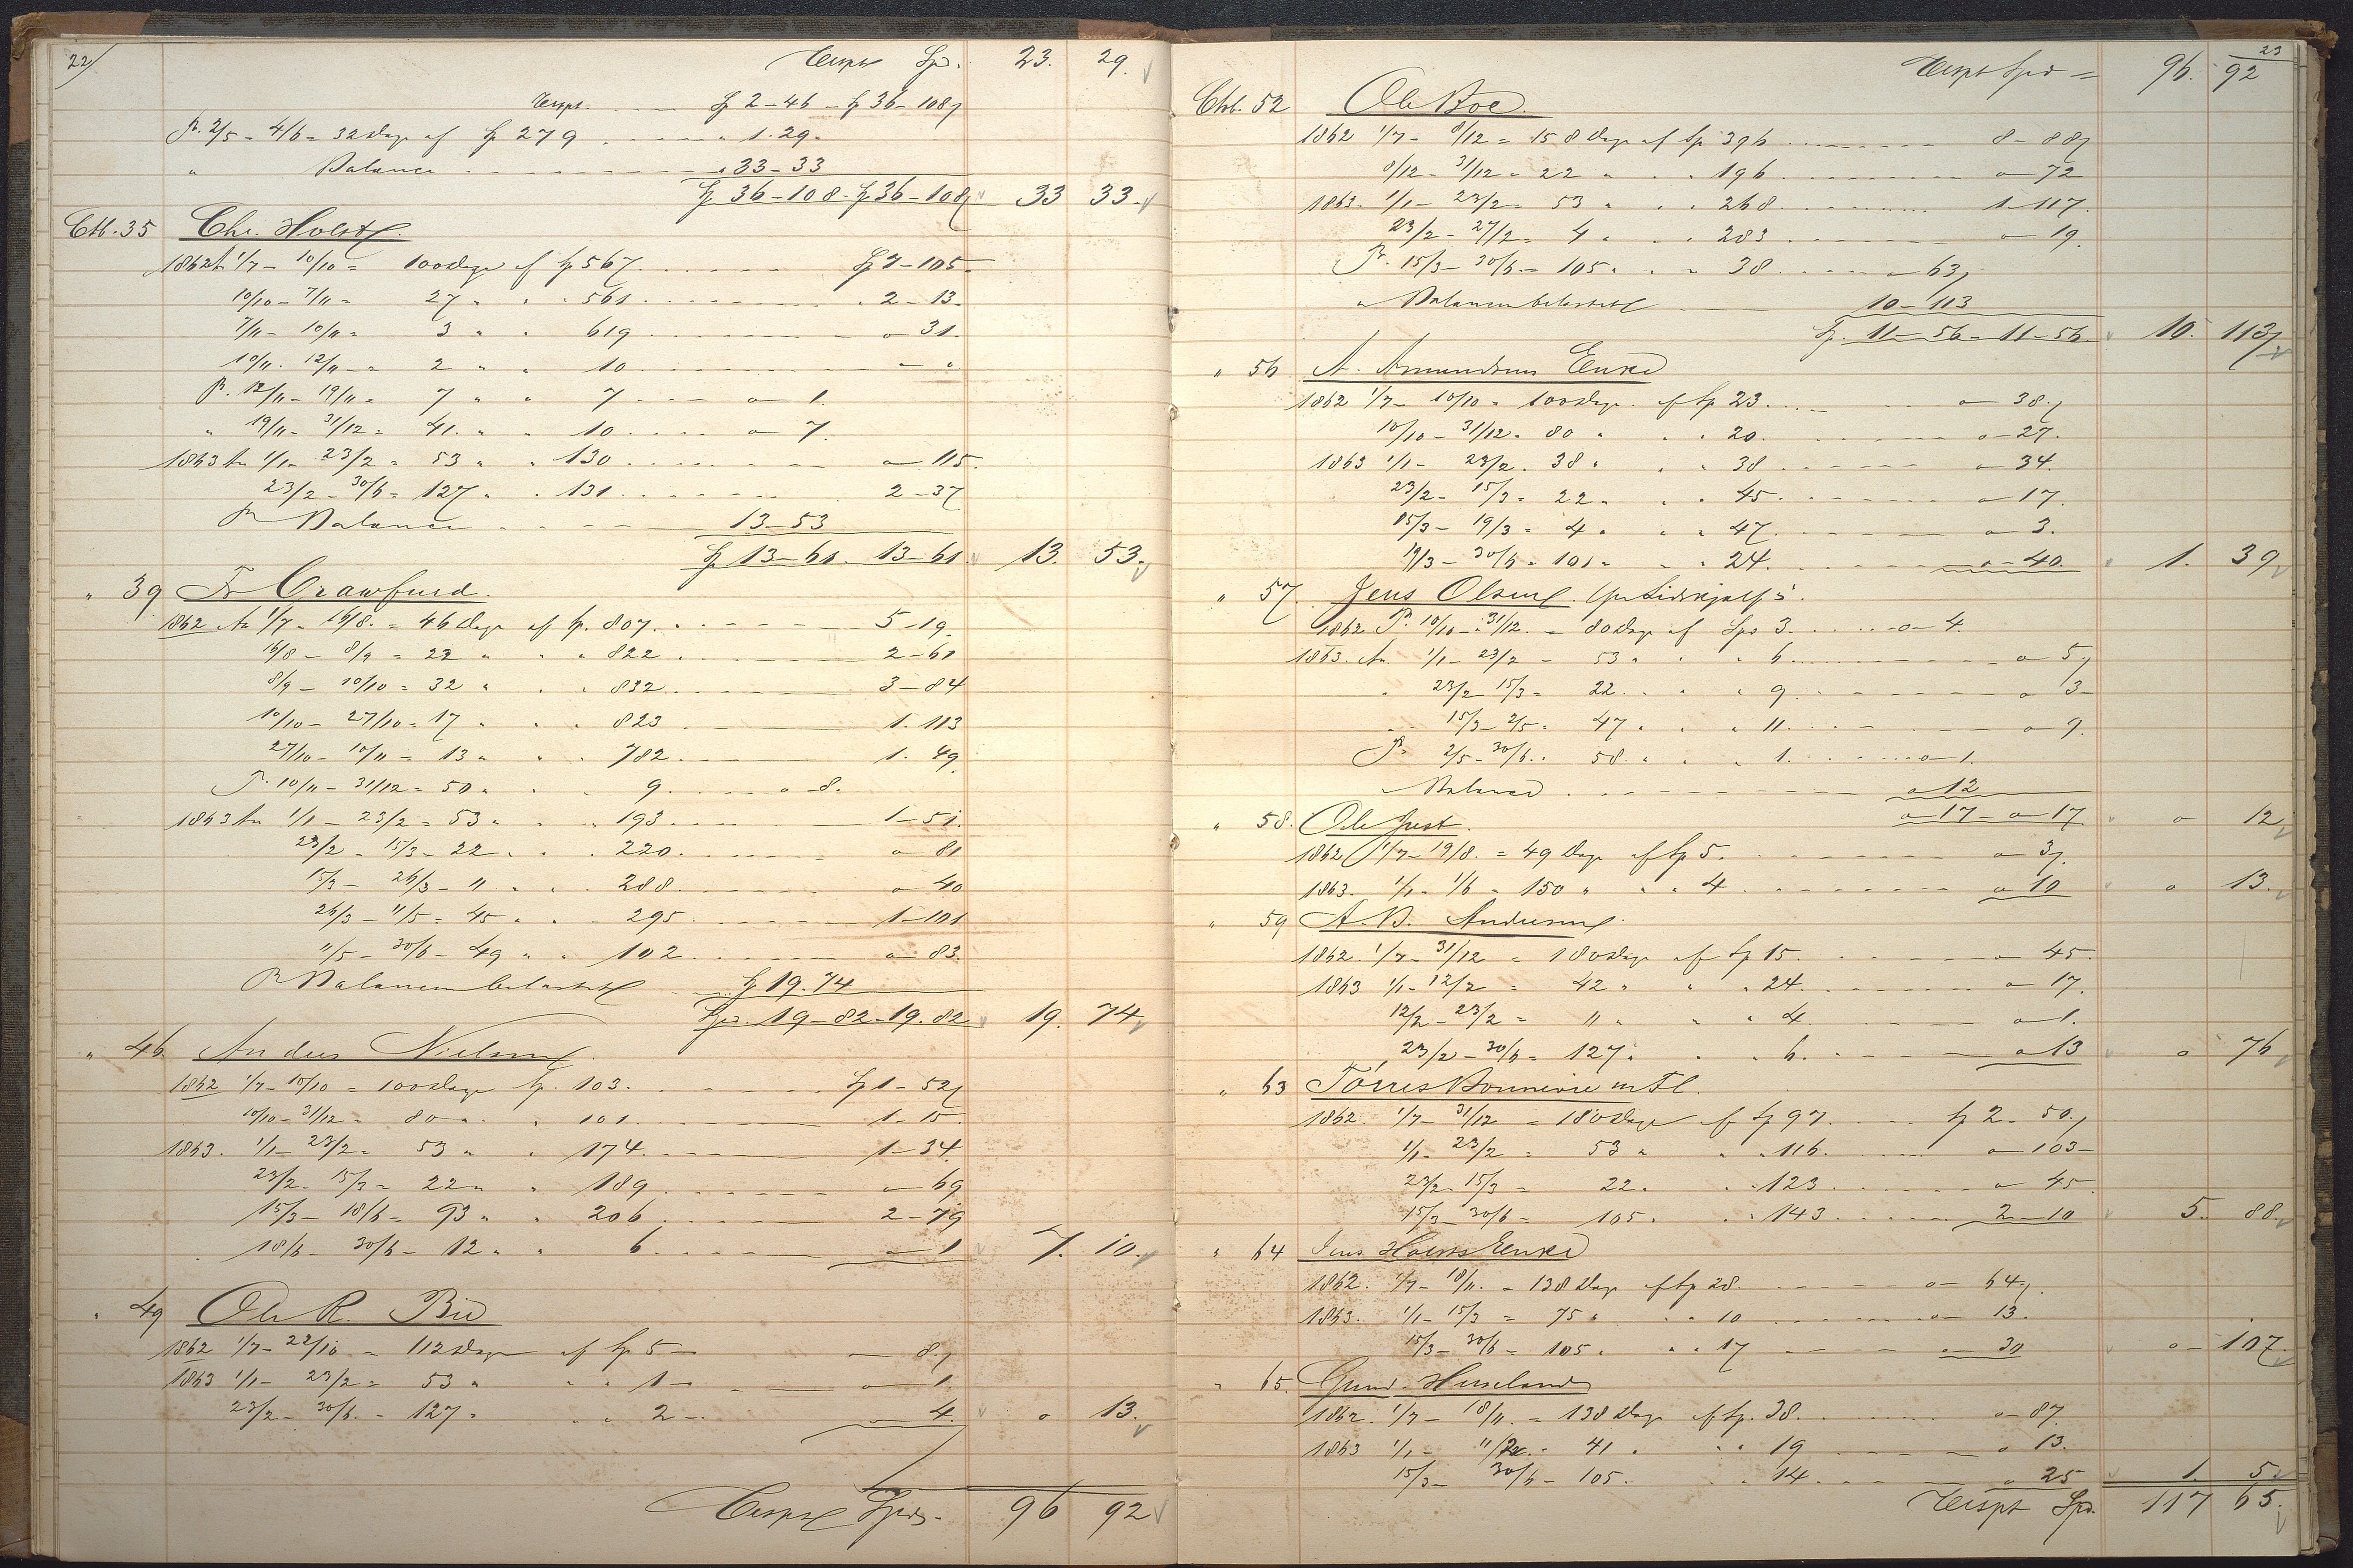 22/
Transpt Spd. 23. 29.
Transpt. Sp 2-46 - Sp 36-108/
Pr. 2/5 - 4/6 = 32 Dage af Sp 279 " 1.29.
" Balance " 33-33
Sp 36-108. Sp 36-108/ 33 33.
Ctb. 35 Chr. Holst
1862 An 1/7 - 10/10 = 100 Dage af Sp 567. Sp 7-105-
10/10 - 7/11 = 27 " " " 561. " 2-13.
7/11 - 10/11 = 3 " " 619 o 31.
10/11 - 12/11 = 2 " " 10 - "
Pr. 12/11 - 19/11 = 7 " " 7 o 1.
" 19/11 - 31/12 = 41. " " 10 o 7.
1863 An 1/1 - 23/2 = 53 " " 130 o 115.
23/2 - 30/6 = 127 " " 131. 2-37
Pr Balance 13-53
Sp 13-61. 13-61. 13. 53.
" 39 Fr Crawfurd.
1862 An 1/7 - 16/8. = 46 Dage af Sp. 807. 5-19.
16/8 - 8/9 = 22 " " " 822 2-61
8/9 - 10/10 = 32 " " " 832 3-84
10/10 - 27/10 = 17 " " " 823 1.113
27/10 - 10/11 = 13 " " " 782. 1.49.
Pr. 10/11 - 31/12 = 50 " " " 9. o-8.
1863 An 1/1 - 23/2 = 53 " " " 193. 1-51.
23/2 - 15/3 - 22 " " " 220. o 81
15/3 - 26/3 - 11 " " " 288. o 40
26/3 - 11/5 = 45 " " " 295 1-101
11/5 - 30/6 - 49 " " 102 o 83.
Pr Balancen belastet Sp 19.74
Spd. 19-82-19.82 19. 74
" 46. Anders Nielsen.
1862 1/7 - 10/10 = 100 Dage Sp. 103. Sp 1-52/
10/10 - 31/12 = 80 " " 101 1-15.
1863. 1/1 - 23/2 = 53 " " 174. 1-34.
23/2 - 15/3 = 22 " " 189. o 69
15/3 - 18/6 = 93 " " 206 2-79
18/6 - 30/6 - 12 " " 6. o 1 7. 10.
" 49 Ole R. Bie
1862 1/7 - 22/10 = 112 Dage af Sp 5- - 8/
1863 1/1 - 23/2 = 53 " " " 1- o 1.
23/2 - 30/6. = 127 " " " 2-. o 4. o 13.
Transpt Spd. 96 92
23
Transpt Spd = 96. 92
Ctb. 52 Ole Boe.
1862 1/7 - 8/12 = 158 Dage af Sp 396 8-88/
8/12 - 31/12 = 22 " " 196 o-72
1863. 1/1 - 23/2 = 53 " " 268. 1-117.
23/2 - 27/2 = 4 " " 283 o 19.
Pr. 15/3 - 30/6 = 105 " " 38. o 63/
" Balancen belastet 10-113
Sp. 11-56 - 11-56. 10. 113/
" 56 A. Amundsens Enke
1862 1/7 - 10/10 = 100 Dage. af Sp 23. o 38./
10/10 - 31/12 = 80 " " " 20. o-27.
1863 1/1 - 23/2. 38 " " " 38 o 34.
23/2 - 15/3 = 22 " " " 45. o 17.
15/3 - 19/3 = 4 " " " 47. o 3.
19/3 - 30/6 = 101 " " " 24. o-40. 1. 39
" 57. Jens Olsen.
1862 Pr. 10/10 - 31/12. = 80 Dage af Spd 3. o-4.
1863. An. 1/1 - 23/2 = 53 " " " 6. o 5/
" 23/2 - 15/3 = 22. " " " 9. o 3-
15/3 - 2/5 = 47 " " " 11. o 9.
Pr. 2/5 - 30/6. = 58. " " " 1. o-1.
" Balance o 12
o 17-o 17. o 12
" 58. Ole Just.
1862 1/7 - 19/8. = 49 Dage af Sp 5. o 3/.
1863. 1/1 - 1/6 = 150 " " " 4 o 10 o 13.
" 59 A. B. Andersen.
1862. 1/7 - 31/12 = 180 Dage af Sp 15. o 45.
1863 1/1 - 12/2 = 42 " " " 24. o 17.
12/2 - 23/2 = 11 " " " 4. o 1.
23/2 - 30/6 = 127. " " 6. o 13 o 76
" 63 Törres Bonnevie m Fl.
1862. 1/7 - 31/12 = 180 Dage af Sp 97. Sp 2-50./
1/1 - 23/2 = 53 " " " 116. o 103-
23/2 - 15/3 = 22. " " 123 o 45
15/3 - 30/6 = 105. " " 143 2-10 5. 88.
" 64 Jens Holsts Enke
1862. 1/7 - 18/11. = 138 Dage af Sp 28. o- 64./
1863. 1/1 - 15/3 = 75 " " " 10 o 13.
15/3 - 30/6 = 105. " " 17 o 30 o-107.
" 65. Gund. Huseland
1862. 1/7 - 18/11. = 138 Dage af Sp. 38. o 87
1863 1/1 - 11/2. = 41 " " " 19 o 13.
15/3 - 30/6 - 105. " " 14. o 25 1. 5.
Transpt Spd. 117 65.